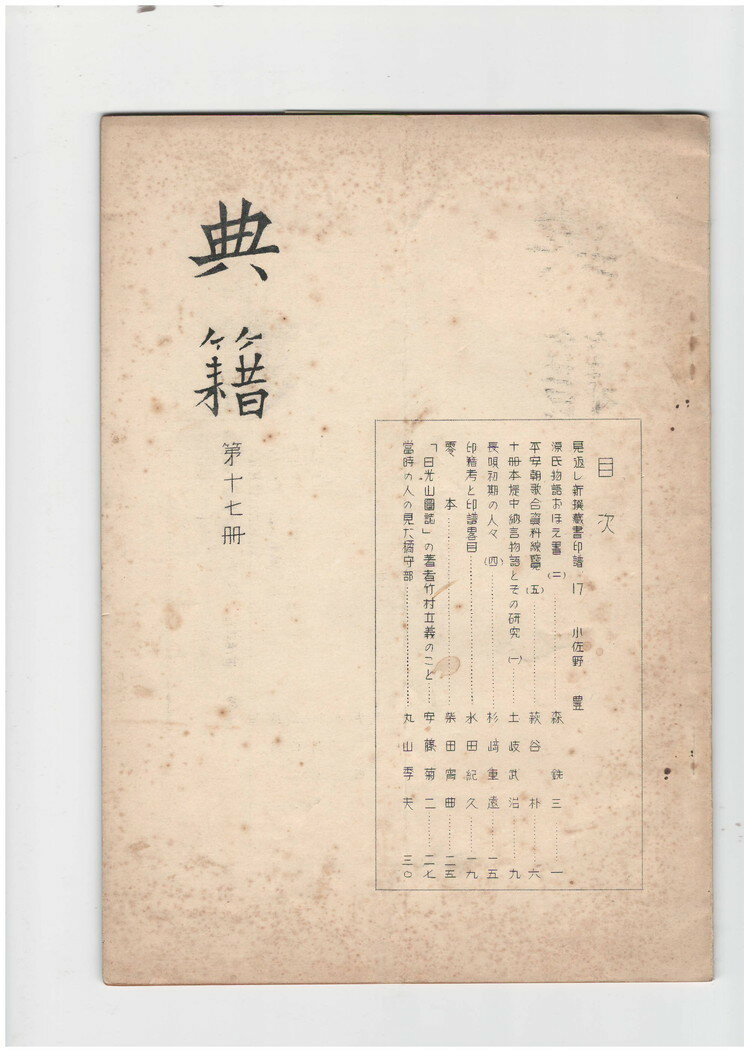 典籍
第十七冊
目次
見返し新撰蔵書印譜 17 小佐野 豊
源氏物語おほえ書(二)…………森銑三……一
平安朝歌合資料綜覧(五)…………萩谷朴……六
十冊本堤中納言物語とその研究(一)……土岐武治……九
長唄初期の人々(四)…………杉﨑重遠……一五
印籍考と印譜書目…………水田紀久……一九
零本…………柴田宵曲……二五
「日光山圖誌」の著者竹村立義のこと……安藤菊二……二七
當時の人の見た橘守部…………丸山季夫……三〇